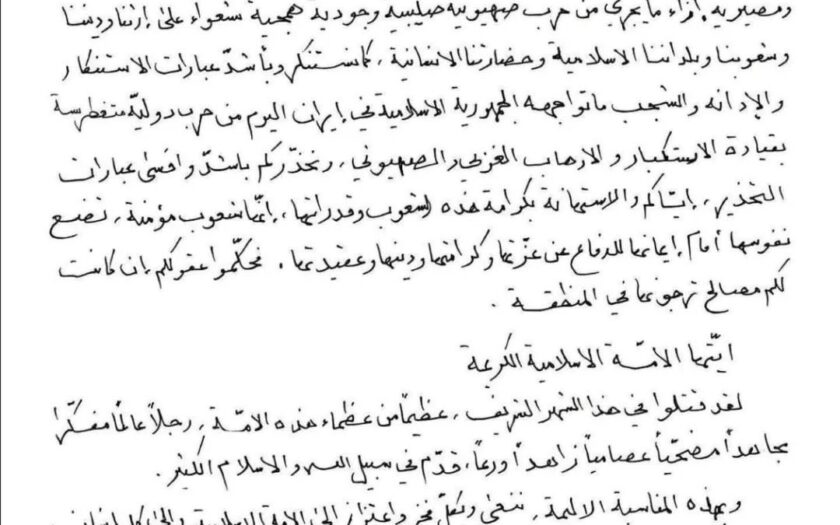 ومصيرية. إزاء ما يجري من حرب صهيونية صليبية وجودية همجية شعواء على إرثنا وديننا
وشعوبنا وبلداننا الاسلامية وحضارتنا الانسانية، كما نستنكر وبأشدّ عبارات الاستنكار
والإدانة والشجب ما تواجهه الجمهورية الاسلامية في إيران اليوم من حرب دوليّة متغطرسة
بقيادة الاستكبار والارهاب الغربي والصهيوني، ونحذّركم باشدّ وأقسى عبارات
التحذير، إيّاكم والاستهانة بكرامة هذه الشعوب وقدراتها، إنّها شعوب مؤمنة، تضع
نفوسها أمام إيمانها للدفاع عن عزّتها وكرامتها ودينها وعقيدتها. فحكّموا عقولكم إن كانت
لكم مصالح ترجونها في المنطقة.
ايّتها الامّة الاسلامية الكريمة
لقد قتلوا في هذا الشهر الشريف، عظيماً من عظماء هذه الامّة، رجلاً عالماً مفكّراً
مجاهداً مضحّياً عصامياً زاهداً ورعاً، قدّم في سبيل الله والاسلام الكثير.
وبهذه المناسبة الاليمة، ننعى وبكلّ فخر واعتزاز إلى الأمة الاسلامية وإلى كل